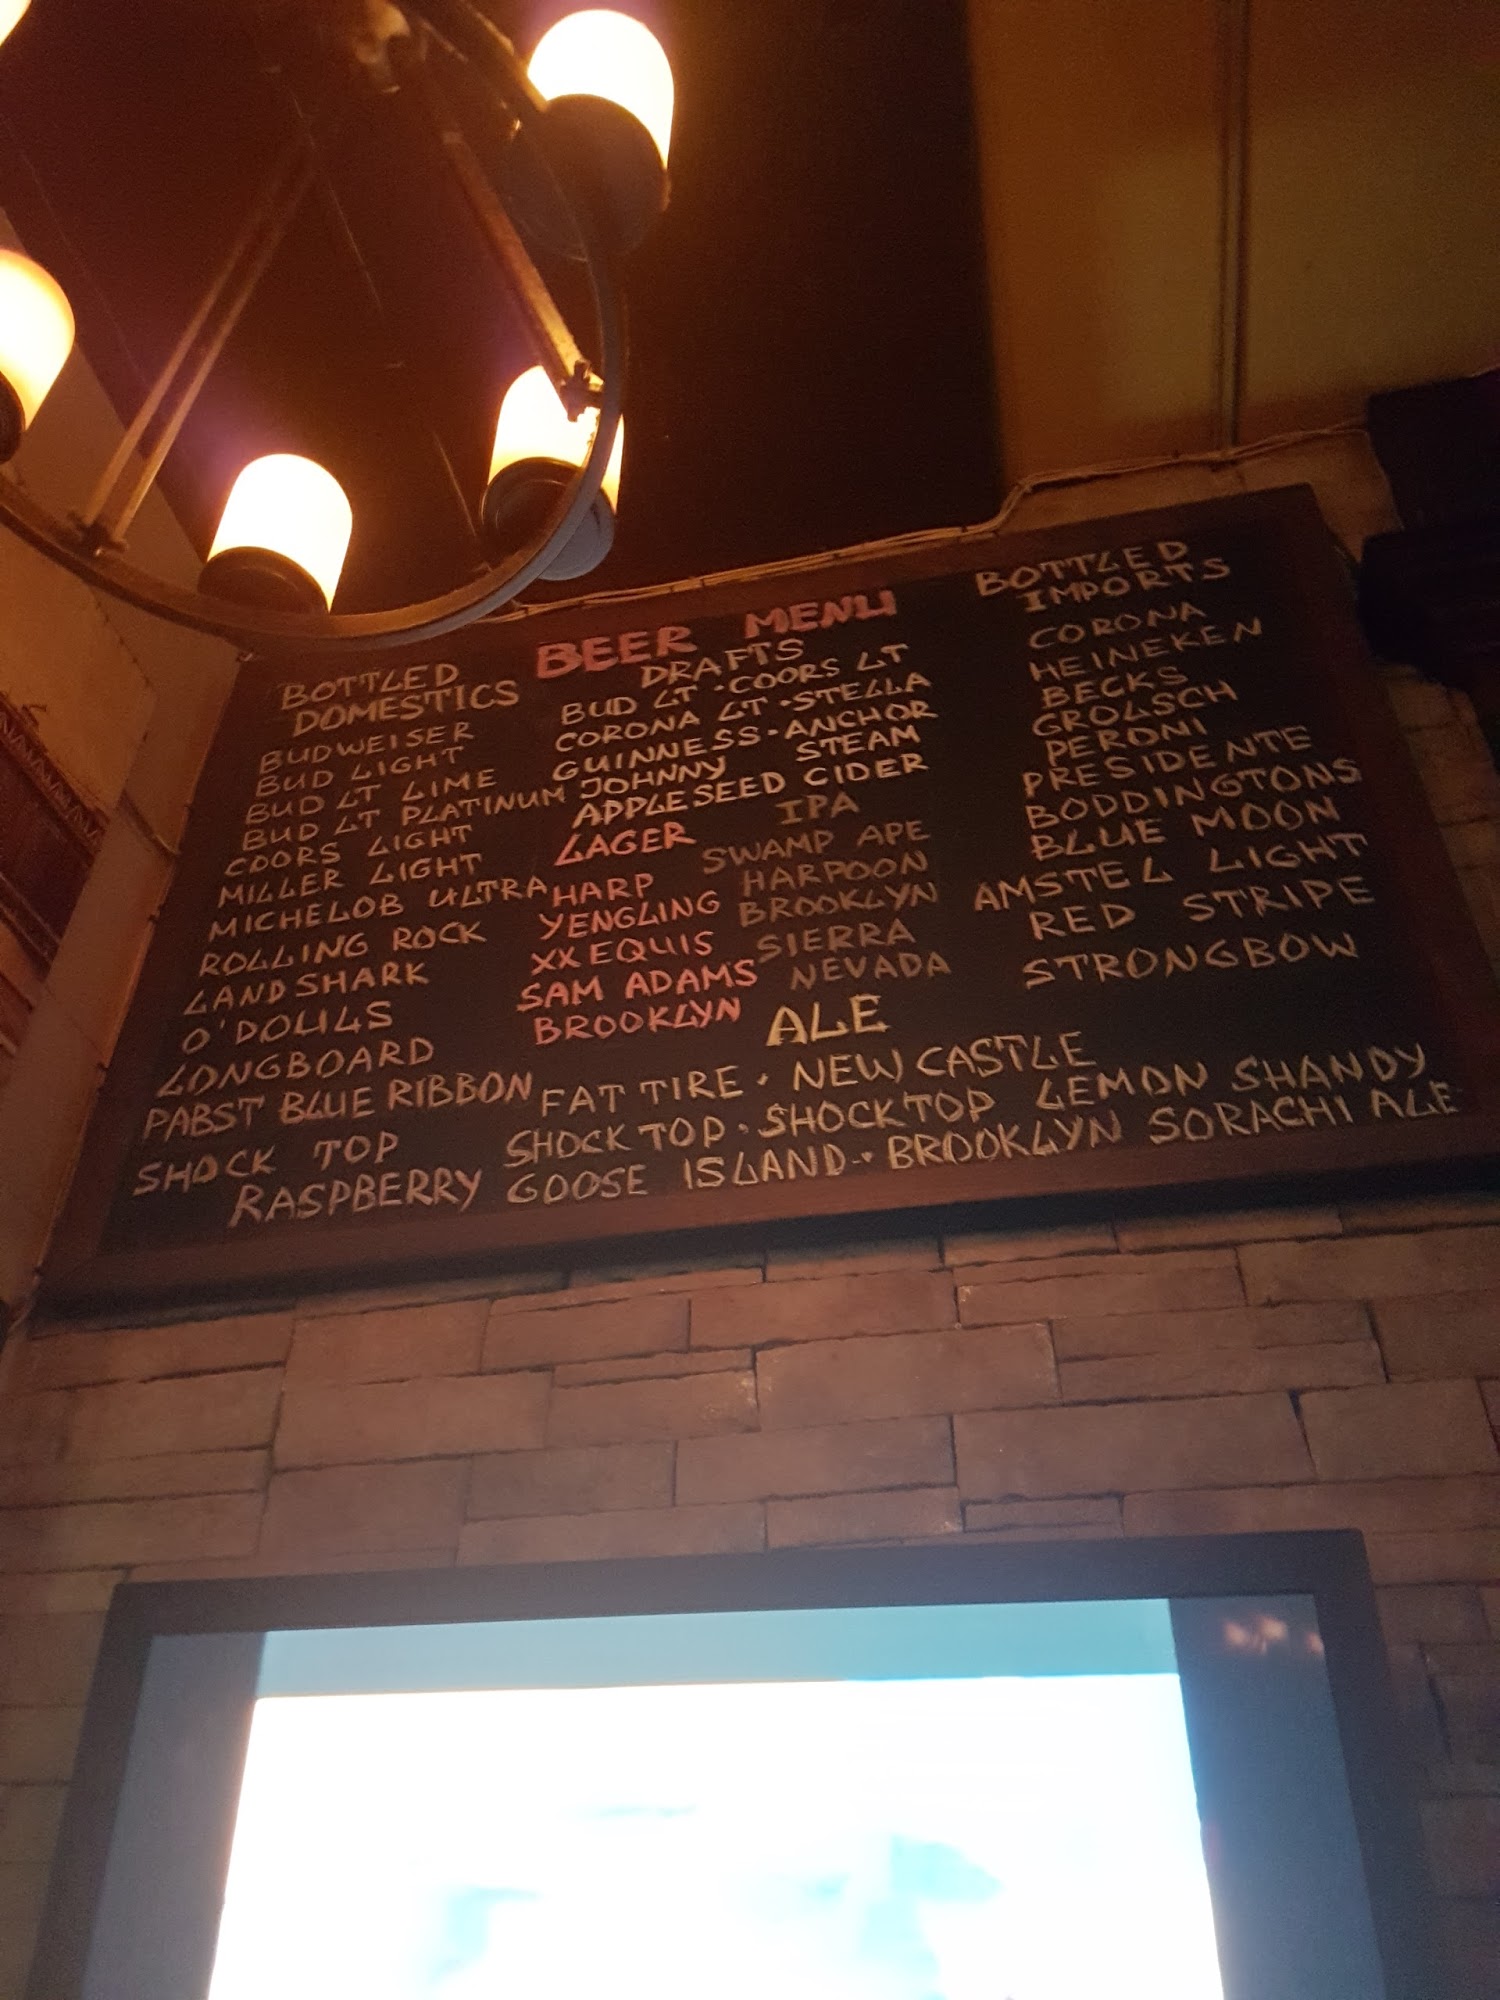 BEER MENU
BOTTLED
DOMESTICS
BUDWEISER
BUD LIGHT
BUD LT LIME
BUD LT PLATINUM
COORS LIGHT
MILLER LIGHT
MICHELOB ULTRA
ROLLING ROCK
LANDSHARK
O'DOULS
LONGBOARD
PABST BLUE RIBBON
SHOCK TOP
RASPBERRY
DRAFTS
BUD LT · COORS LT
CORONA LT · STELLA
GUINNESS - ANCHOR
JOHNNY STEAM
APPLESEED CIDER
LAGER
HARP
YENGLING
XX EQUIS
SAM ADAMS
BROOKLYN
IPA
SWAMP APE
HARPOON
BROOKLYN
SIERRA
NEVADA
ALE
FAT TIRE · NEW CASTLE
SHOCK TOP · SHOCK TOP LEMON SHANDY
GOOSE ISLAND - · BROOKLYN SORACHI ALE
BOTTLED
IMPORTS
CORONA
HEINEKEN
BECKS
GROLSCH
PERONI
PRESIDENTE
BODDINGTONS
BLUE MOON
AMSTEL LIGHT
RED STRIPE
STRONGBOW